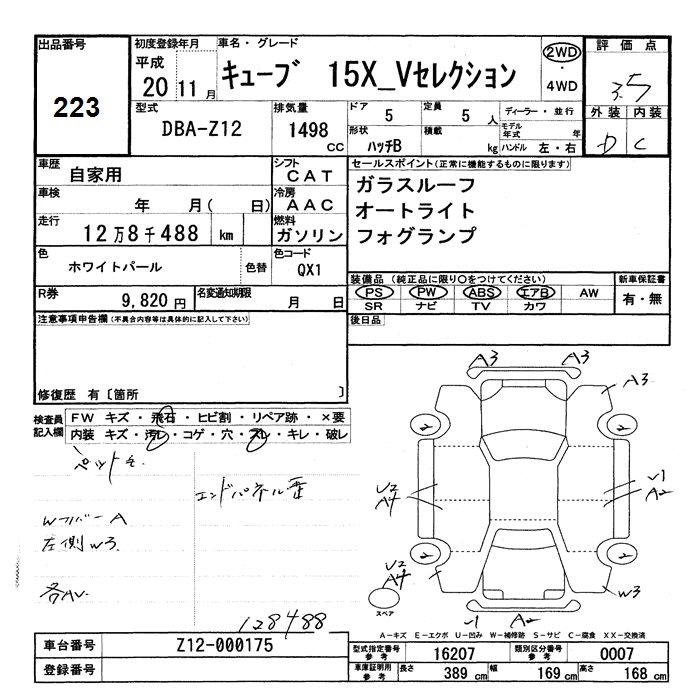 出品番号
223
初度登録年月
平成
20 11月
車名・グレード
キューブ 15X_Vセレクション
2WD
・
4WD
評価点
3.5
外装 内装
D C
型式
DBA-Z12
排気量
1498
CC
ドア
5
定員
5 人
ディーラー・並行
形状
ハッチB
積載
kg
モデル年式 年
ハンドル 左・右
車歴
自家用
シフト
CAT
車検
年 月( 日)
冷房
AAC
走行
12万8千488 km
燃料
ガソリン
色
ホワイトパール
色替
色コード
QX1
R券
9,820円
名変通知期限
月 日
セールスポイント(正常に機能するものに限ります)
ガラスルーフ
オートライト
フォグランプ
装備品(純正品に限り〇をつけてください)
PS PW ABS エアB AW
SR ナビ TV カワ
新車保証書
有・無
後日品
注意事項申告欄(不具合内容等は具体的に記入して下さい)
修復歴 有〔箇所 〕
検査員記入欄
FW キズ・飛石・ヒビ割・リペア跡・×要
内装 キズ・汚レ・コゲ・穴・スレ・キレ・破レ
ペット毛
エンドパネル歪
WカバーA
左側W3
各AU
128488
A3 A3
A3
2 2
U2
A4
U1
A2
2 2
U2
A4
W3
スペア
U1 A2
A-キズ E-エクボ U-凹み W-補修跡 S-サビ C-腐食 XX-交換済
車台番号
Z12-000175
登録番号
型式指定番号
参考
16207
類別区分番号
参考
0007
車庫証明用
参考
長さ 389 cm 幅 169 cm 高さ 168 cm